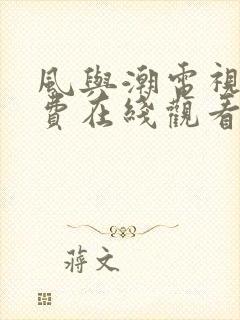 風與潮電視
費在綫觀看
蔣文